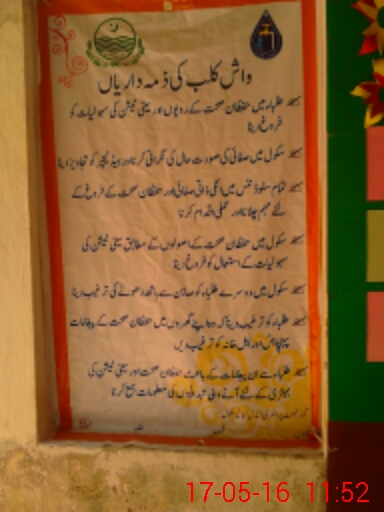 واش کلب کی ذمہ داریاں
طلباء میں حفظان صحت کے رویوں اور سینی ٹیشن کی سہولیات کو
فروغ دینا
سکول میں صفائی کی صورت حال کی نگرانی کرنا اور ہیڈ ٹیچر کو تجاویز دینا
تمام سٹوڈنٹس میں انکی ذاتی صفائی اور حفظان صحت کے فروغ کے
لئے مہم چلانا اور عملی اقدام کرنا
سکول میں حفظان صحت کے اصولوں کے مطابق سینی ٹیشن کی
سہولیات کے استعمال کو فروغ دینا
سکول میں دوسرے طلباء کو صابن سے ہاتھ دھونے کی ترغیب دینا
طلباء کو ترغیب دینا کہ وہ اپنے گھروں میں حفظان صحت کے پیغامات
پہنچائیں اور اہل خانہ کو ترغیب دیں
طلباء سے ان پیغامات کے باعث حفظان صحت اور سینی ٹیشن کی
بہتری کے لئے آنے والی تبدیلیوں کی معلومات جمع کرنا
17-05-16 11:52